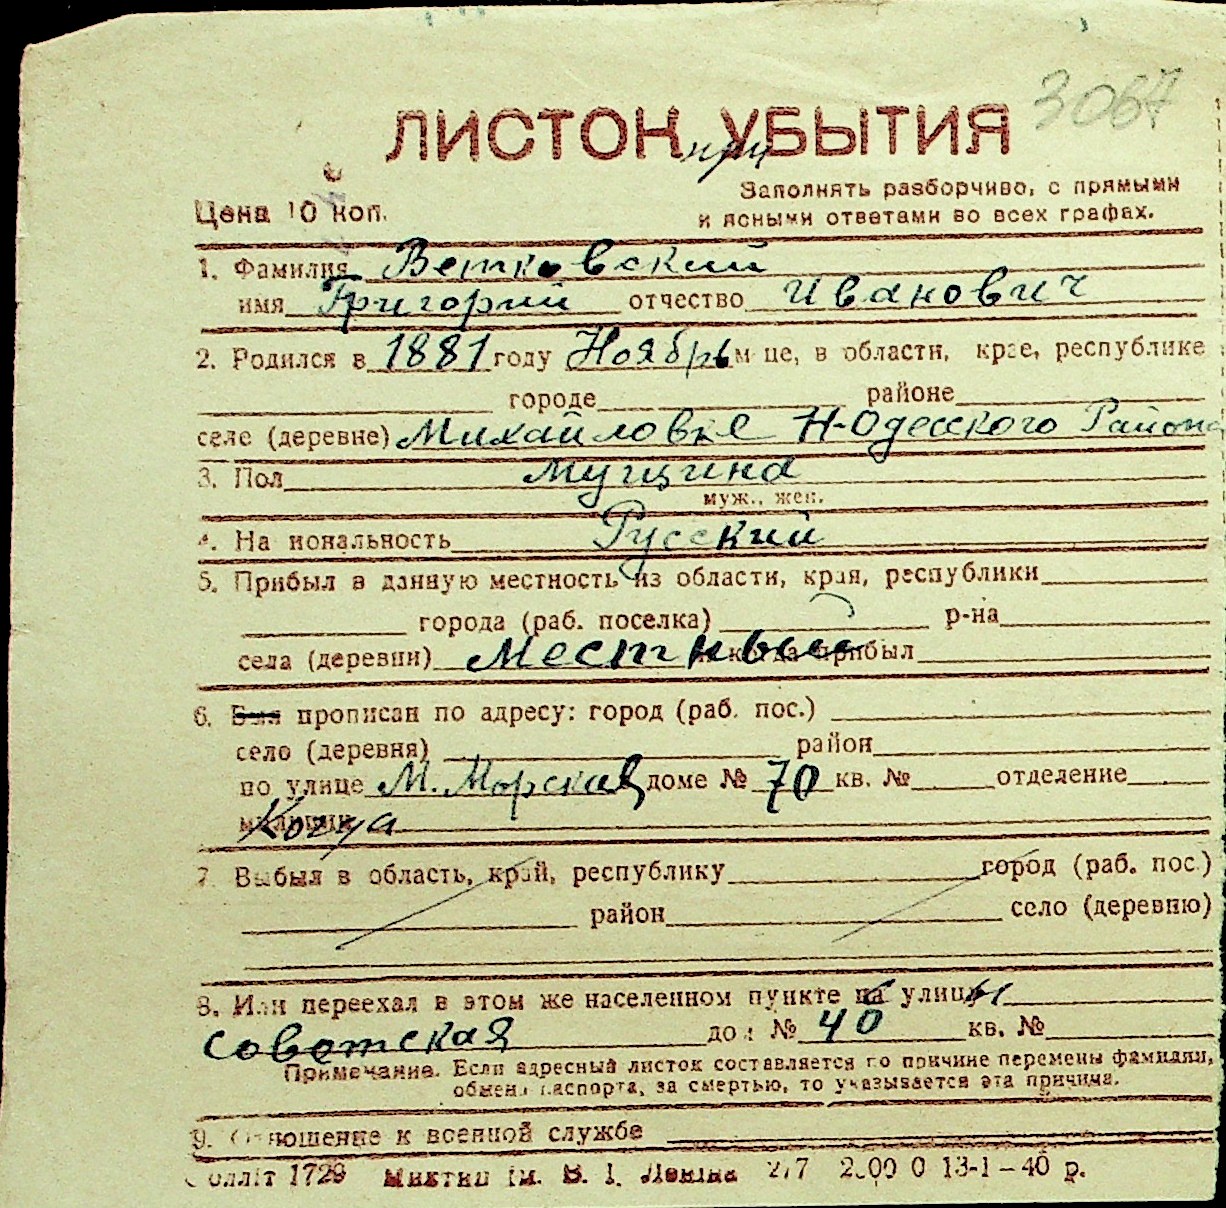 3067
ЛИСТОК УБЫТИЯ
при
Заполнять разборчиво, с прямыми
Цена 10 коп.
и ясными ответами во всех графах.
1. Фамилия Ветковский
имя Григорий отчество Иванович
2. Родился в 1881 году Ноябрь м-це, в области, крае, республике
городе районе
селе (деревне) Михайловке Н-Одесского Района
3. Пол мущина
муж., жен.
4. Национальность Русский
5. Прибыл в данную местность из области, края, республики
города (раб. поселка) р-на
села (деревни) Местный и когда прибыл
6. Был прописан по адресу: город (раб. пос.)
село (деревня) район
по улице М. Морская доме № 70 кв. № отделение
милиции
7. Выбыл в область, край, республику город (раб. пос.)
район село (деревню)
8. Или переехал в этом же населенном пункте на улицы
советская дом № 40 кв. №
Примечание. Если адресный листок составляется по причине перемены фамилии,
обмена паспорта, за смертью, то указывается эта причина.
9. Отношение к военной службе
1729 ім. В. І. Леніна 13-1–40 р.